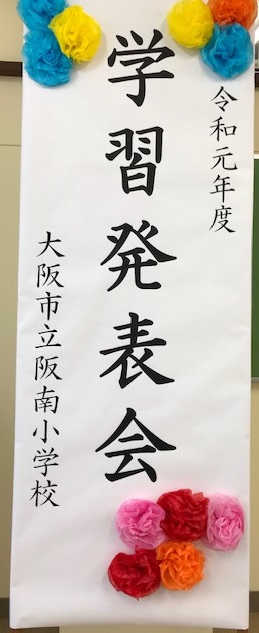 令和元年度
学習発表会
大阪市立阪南小学校